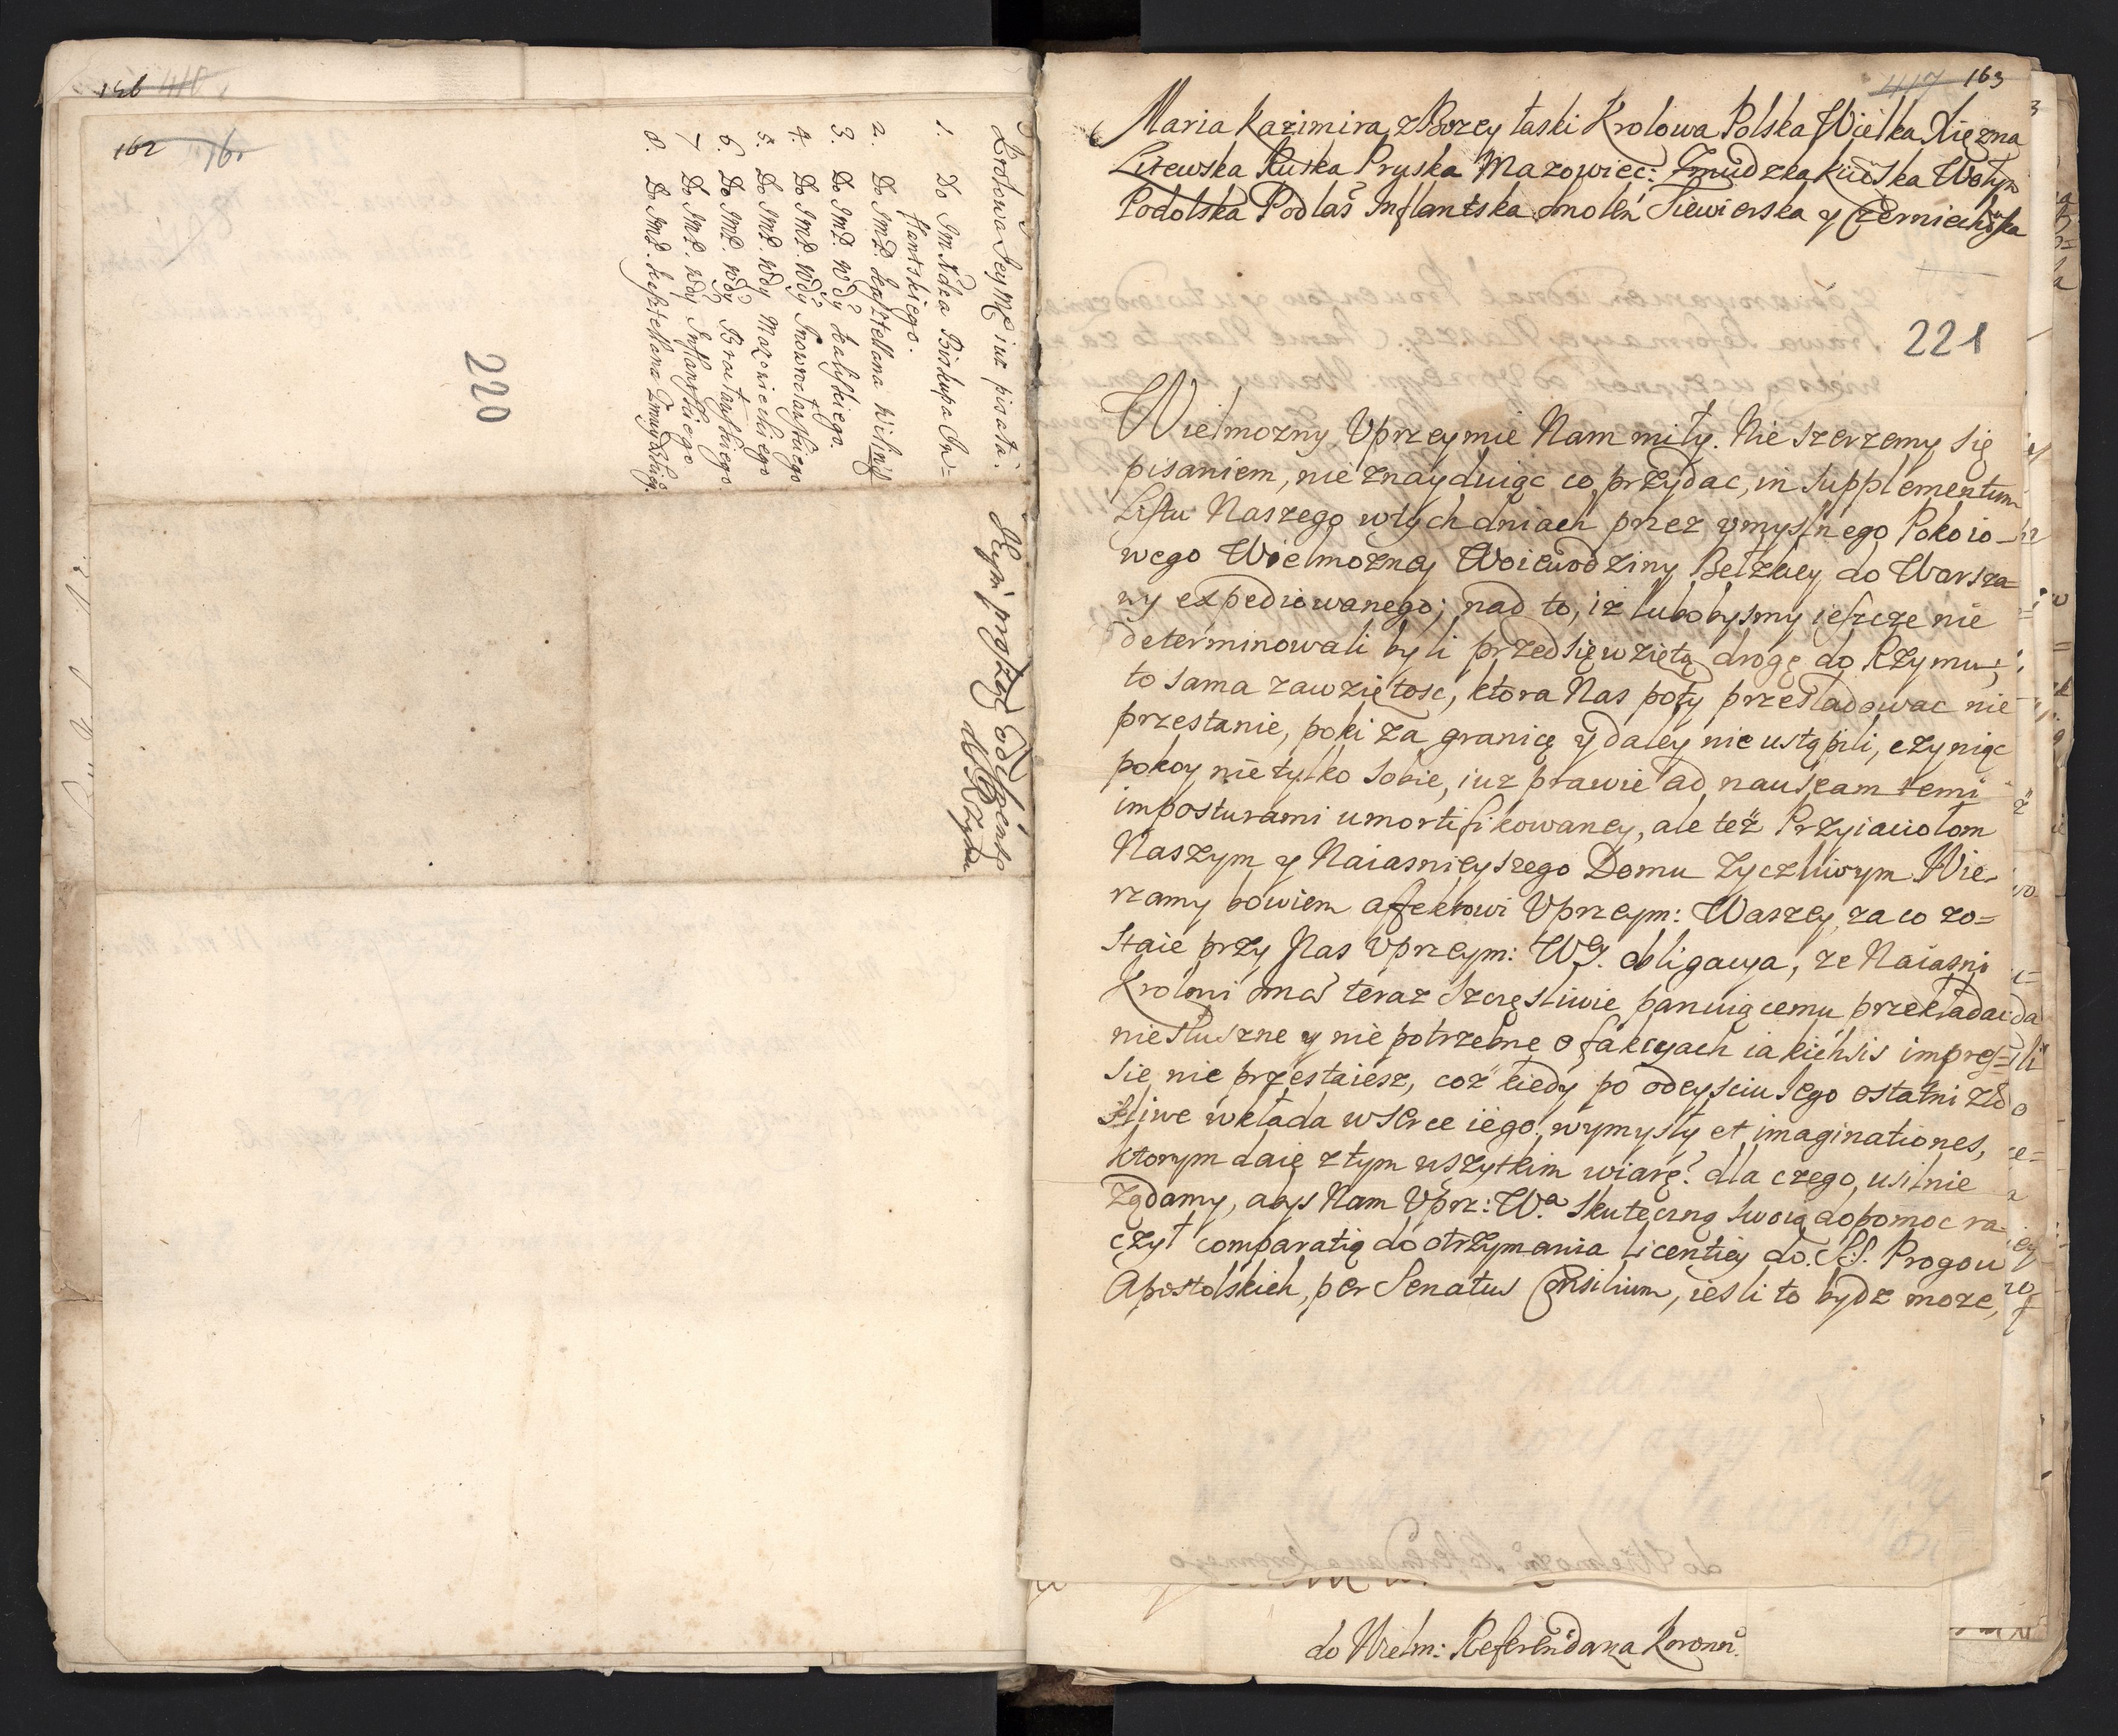 162
220
Krolowa Jey Mć iuz pisała.
1. Do Im Xdza Biskupa In=
flantskiego.
2. Do ImP. Kasztellana Wilnĩs
3. Do ImP. Wdy Kaliskiego.
4. Do ImP. Wdy Inowrocławskiego
5. Do ImP. Wdy Mazowieckiego
6. Do ImP. Wdy Bracławskiego.
7 Do ImP. Wdy Inflantskiego
8. Do ImP. Kasztellana Zmuydzkieg.
417 163
Maria Kazimira z Bozey łaski Krolowa Polska Wielka Xięzna
Litewska Ruska Pruska Mazowiec: Zmudzka Kiiowska Wołyn
Podolska Podlas Inflantska Smolen Siewierska y Czerniechowska
221
Wielmozny Vprzeymie Nam miły. Nie szerzemy się
pisaniem, nie znayduiąc co przydac, in supplementum
Listu Naszego w tych dniach przez vmyslnego Pokoio-
wego Wielmozney Woiewodziny Bełzkiey do Warsza=
wy expediowanego; nad to, iz lubobysmy ieszcze nie
determinowali byli przedsięwziętą drogę do Rzymu;
to sama zawziętosc, ktora Nas poty przesladowac nie
przestanie, poki za granicę y daley nie ustąpili, czyniąc
pokoy nie tylko sobie, iuz prawie ad nauseam temi
imposturami umortifikowaney, ale też Przyiaciołom
Naszym y Naiasnieyszego Domu zyczliwym Wie-
rzamy bowiem affektowi Vprzeym: Waszey, za co zo=
staie przy Nas Vprzeym: Wy. obligacya, ze Naiasni
Krolowi ma teraz szczęsliwie panuiącemu przekładac
niesłuszne y nie potrzebne o fakcyach iakichsis impres=
sie nie przestaiesz, coż kiedy po odeysciu Jego ostatni zło
sliwe wkłada w serce iego wymysły et imaginationes,
ktorym daie z tym wszytkim wiarę? dla czego, usilnie
Ządamy, abys Nam Vprz: Wa skuteczną swoią dopomoc ra=
czył comparatią do otrzymania licentiey do S.S. Progow
Apostolskich, per Senatus Consilium, iesli to bydz moze,
do Wielm: Referendarza Koronn.